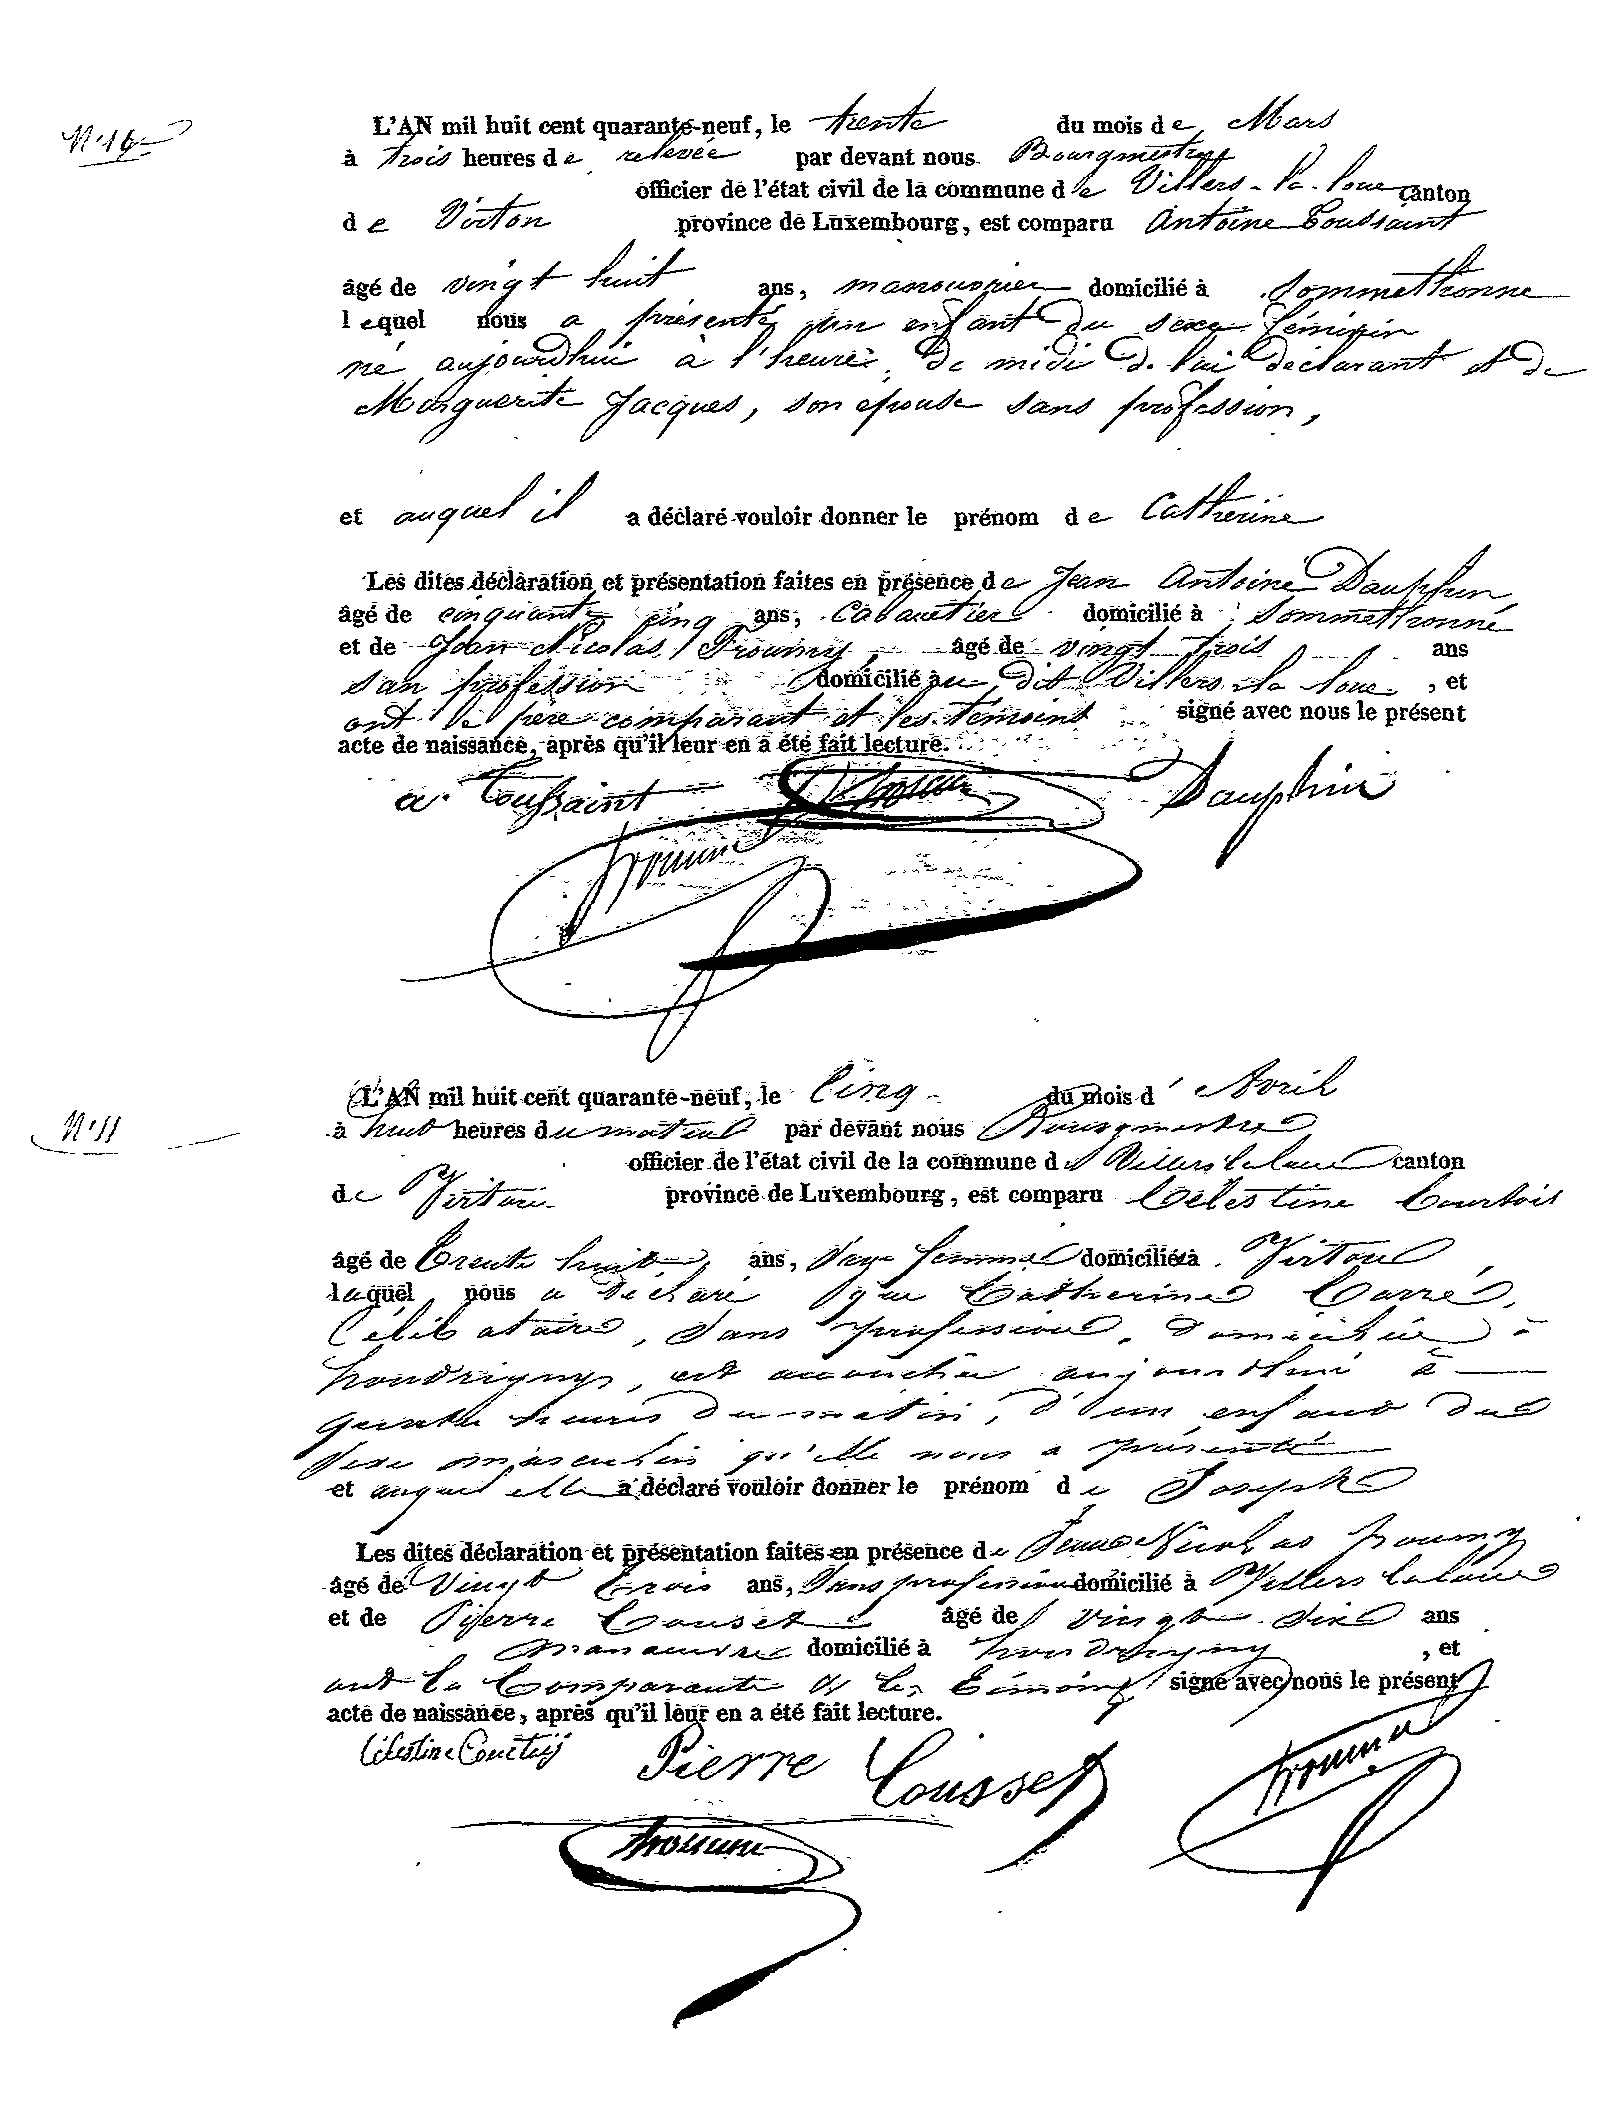 N.º 10
L'AN mil huit cent quarante-neuf, le trente du mois de Mars
à trois heures de relevée par devant nous Bourgmestre
officier de l'état civil de la commune de Villers-la-loue canton
de Virton province de Luxembourg, est comparu Antoine Toussaint
âgé de vingt huit ans, manouvrier domicilié à Sommethonne
lequel nous a présenté un enfant du sexe féminin
né aujourdhui à l'heure de midi de lui déclarant et de
Marguerite Jacques, son épouse sans profession,
et auquel il a déclaré vouloir donner le prénom de Catherine
Les dites déclaration et présentation faites en présence de Jean Antoine Dauphin
âgé de cinquante cinq ans, Cabaretier domicilié à Sommethonne
et de Jean Nicolas Froumy, âgé de vingt trois ans
san profession domicilié au dit Villers-la loue, et
ont le père comparant et les témoins signé avec nous le présent
acte de naissance, après qu'il leur en a été fait lecture.
a. Toussaint Dauphin
N.º 11
L'AN mil huit cent quarante-neuf, le Cinq du mois d' Avril
à huit heures du matin par devant nous Bourgmestre
officier de l'état civil de la commune de Villers laloue canton
de Virton province de Luxembourg, est comparu Célestine Courtois
âgé de Trente huit ans, Sage femme domiciliée à Virton,
laquel nous a déclaré que Catherine Carré,
Célibataire, Sans profession, domiciliée à
houdrigny, est accouchée aujourdhui à
quatre heures du matin, d'un enfant du
Sexe masculin qu'elle nous a présenté
et auquel elle a déclaré vouloir donner le prénom de Joseph
Les dites déclaration et présentation faites en présence de Jean Nicolas froumy
âgé de Vingt trois ans, Sans profession domicilié à Villers laloue
et de Pierre Cousset âgé de vingt six ans
manoeuvre domicilié à houdrigny, et
ont la Comparante et les témoins signé avec nous le présent
acte de naissance, après qu'il leur en a été fait lecture.
Célestine Courtois Pierre Cousset